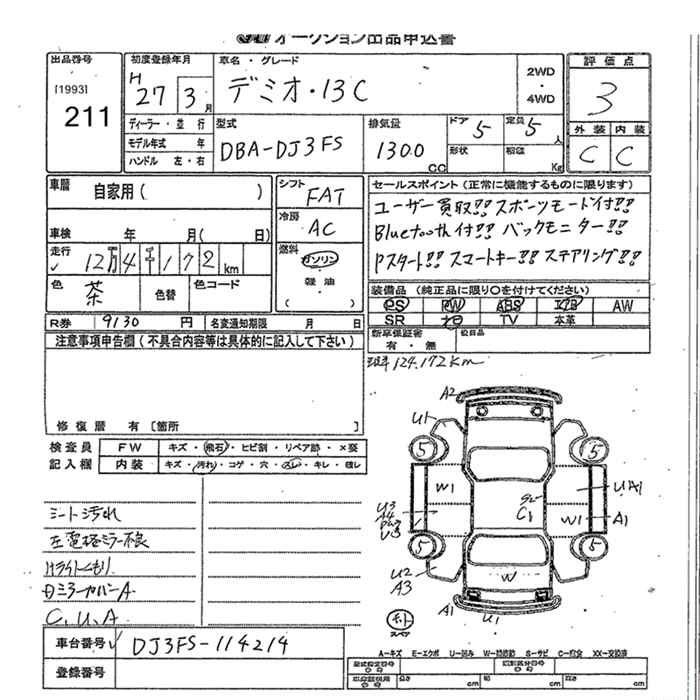 オークション出品申込書
出品番号 初度登録年月 車名・グレード 評価点
[1993] H 27 3月 デミオ・13C 2WD・4WD 3
211 ディーラー・並行 型式 排気量 ドア 5 定員 5人 外装 内装
モデル年式 年 DBA-DJ3FS 1300cc 形状 積載 Kg C C
ハンドル 左・右
車歴 自家用( ) シフト FAT セールスポイント(正常に機能するものに限ります)
冷房 AC ユーザー買取!! スポーツモード付!!
車検 年 月( 日) Bluetooth付!! バックモニター!!
走行 12万4千172km 燃料 ガソリン Pスタート!! スマートキー!! ステアリング!!
色 茶 色替 色コード 軽油 ( )
装備品(純正品に限り○を付けてください)
PS PW ABS エアB AW
SR ナビ TV 本革
R券 9130円 名変通知期限 月 日 新車保証書 有・無 欠品目
注意事項申告欄(不具合内容等は具体的に記入して下さい)
124,172km
修復歴 有 [箇所 ]
検査員 FW キズ・飛石・ヒビ割・リペア跡・×要
記入欄 内装 キズ・汚れ・コゲ・穴・スレ・キレ・破レ
A2
U1
5 5
W1 U3 A4 C1 UA1
W1 A1
5 5
U2 A3 W
A1 U1
シート汚れ
左電格ミラー不良
Hライトくもり
ミラーカバーA
C.U.A
スペア
車台番号 DJ3FS-114214
登録番号
A-キズ E-エクボ U-凹み W-補修跡 S-サビ C-腐食 XX-交換済
型式指定番号 類別区分番号
長さ cm 幅 cm 高さ cm